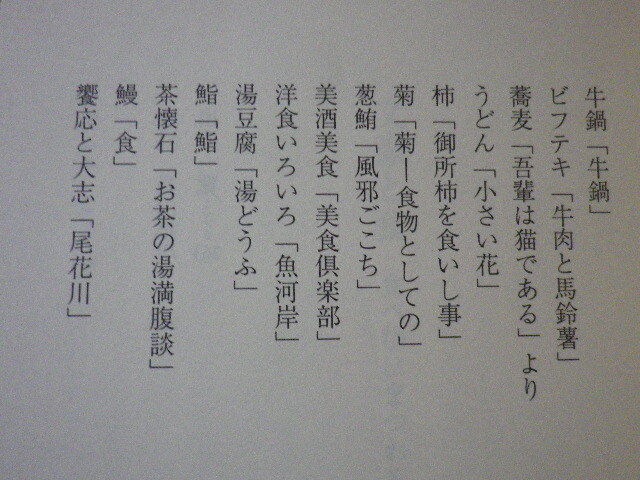 牛鍋「牛鍋」
ビフテキ「牛肉と馬鈴薯」
蕎麦「吾輩は猫である」より
うどん「小さい花」
柿「御所柿を食いし事」
菊「菊―食物としての」
葱鮪「風邪ごこち」
美酒美食「美食倶楽部」
洋食いろいろ「魚河岸」
湯豆腐「湯どうふ」
鮨「鮨」
茶懐石「お茶の湯満腹談」
鰻「食」
饗応と大志「尾花川」